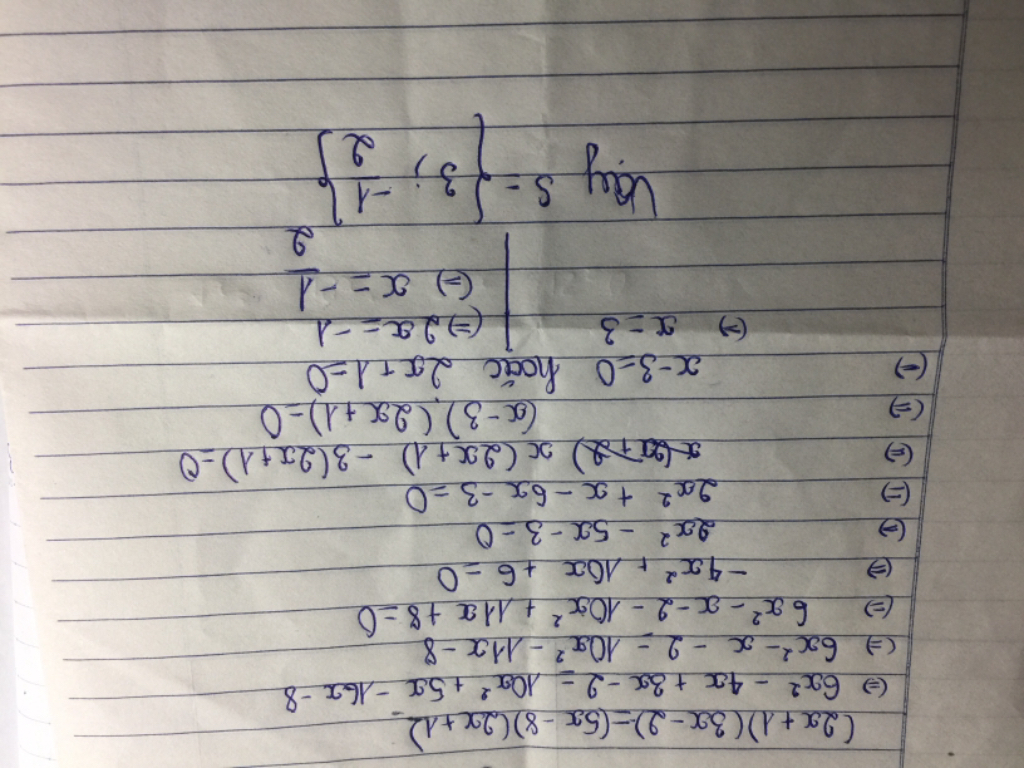 (2x+1)(3x-2)=(5x-8)(2x+1)
(=) 6x² - 4x + 3x - 2 = 10x² + 5x - 16x - 8
(=) 6x² - x - 2 = 10x² - 11x - 8
(=) 6x² - x - 2 - 10x² + 11x + 8 = 0
(=) -4x² + 10x + 6 = 0
(=) 2x² - 5x - 3 = 0
(=) 2x² + x - 6x - 3 = 0
(=) x(2x+1) - 3(2x+1) = 0
(=) (x-3)(2x+1) = 0
(=) x-3=0 hoặc 2x+1=0
(=) x = 3 | (=) 2x = -1
(=) x = -1/2
Vậy S = {3; -1/2}